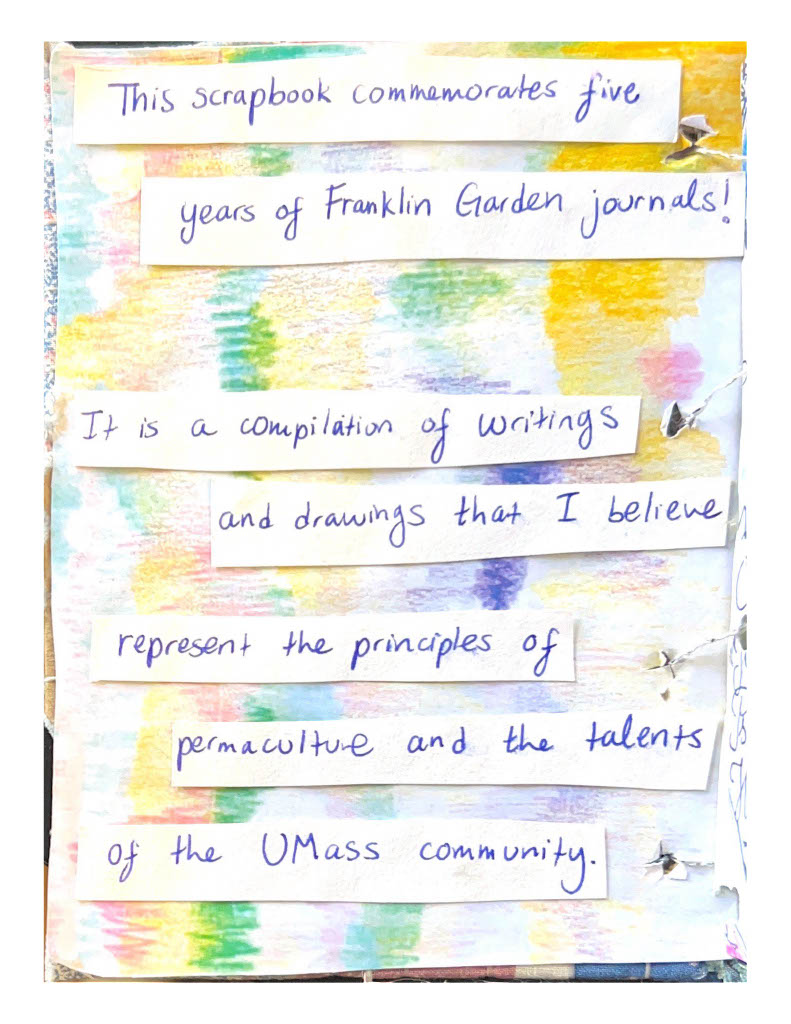 This scrapbook commemorates five
years of Franklin Garden journals!
It is a compilation of writings
and drawings that I believe
represent the principles of
permaculture and the talents
of the UMass community.